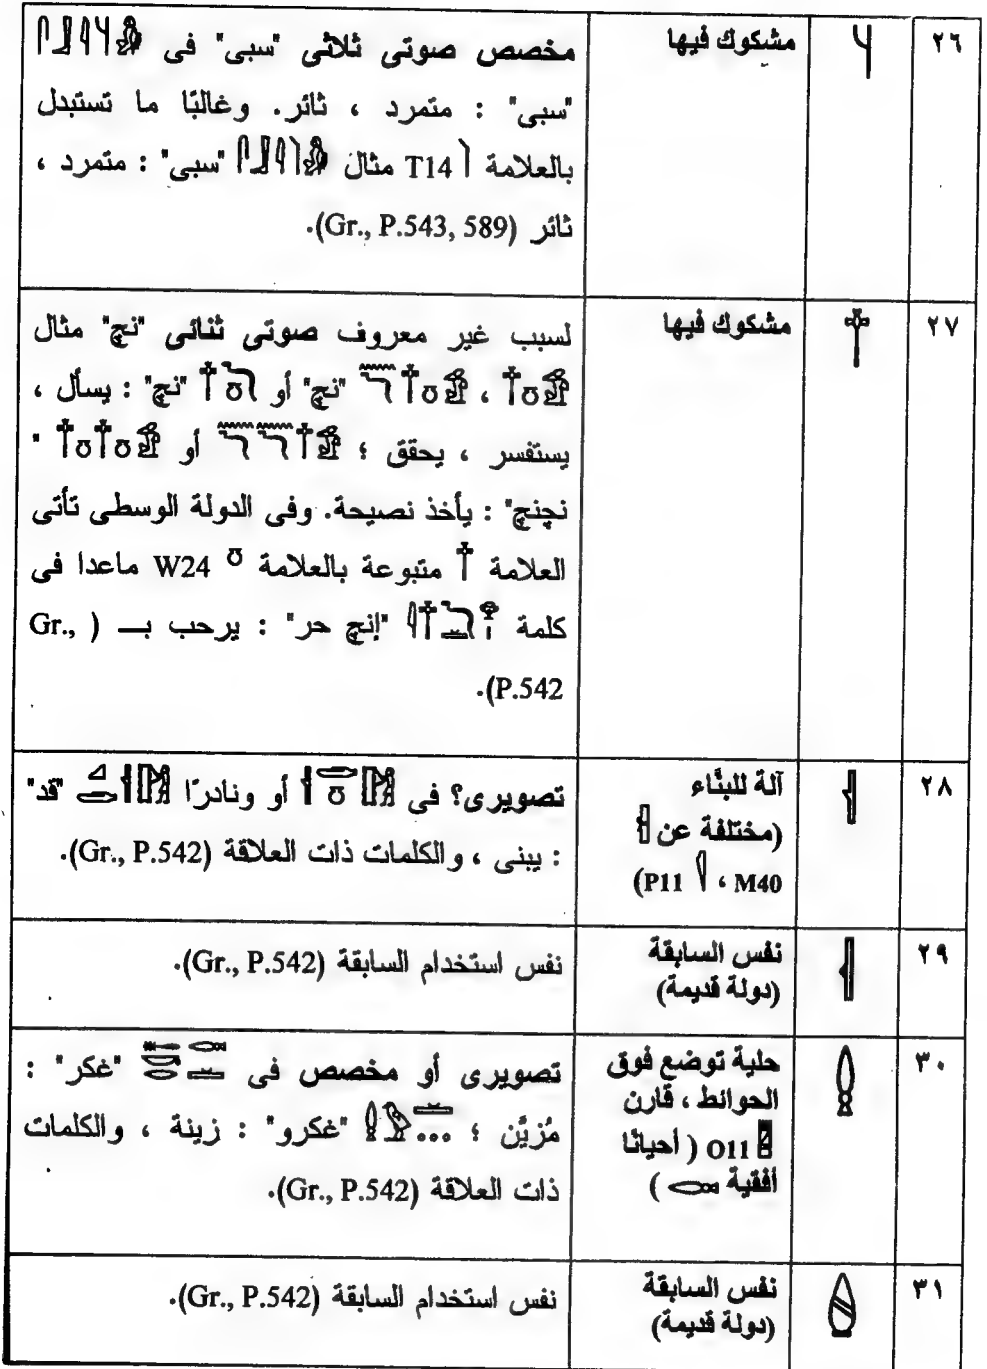 ٢٦
مشكوك فيها
مخصص صوتى ثلاثى "سبى" فى
"سبى" : متمرد ، ثائر. وغالبًا ما تستبدل
بالعلامة T14 مثال "سبى" : متمرد ،
ثائر (Gr., P.543, 589).
٢٧
مشكوك فيها
لسبب غير معروف صوتى ثنائى "نچ" مثال
، "نچ" أو "نچ" : يسأل ،
يستفسر ، يحقق ؛ أو "
نچنچ" : يأخذ نصيحة. وفى الدولة الوسطى تأتى
العلامة متبوعة بالعلامة W24 ماعدا فى
كلمة "إنچ حر" : يرحب بـ ( Gr.,
P.542).
٢٨
آلة للبنَّاء
(مختلفة عن
M40 ، P11)
تصويرى؟ فى أو ونادرًا "قد"
: يبنى ، والكلمات ذات العلاقة (Gr., P.542).
٢٩
نفس السابقة
(دولة قديمة)
نفس استخدام السابقة (Gr., P.542).
٣٠
حلية توضع فوق
الحوائط ، قارن
O11 ( أحيانًا
أفقية )
تصويرى أو مخصص فى "غكر" :
مُزيَّن ؛ ... "غكرو" : زينة ، والكلمات
ذات العلاقة (Gr., P.542).
٣١
نفس السابقة
(دولة قديمة)
نفس استخدام السابقة (Gr., P.542).